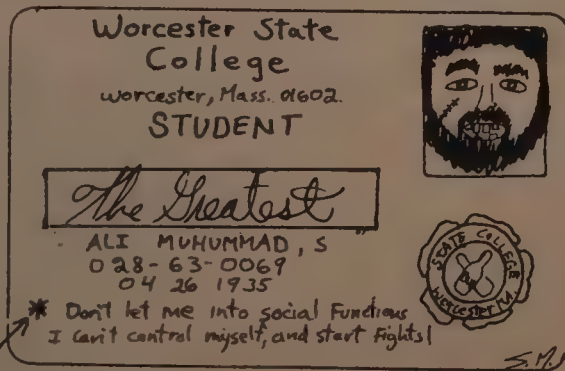 Worcester State
College
Worcester, Mass. 01602.
STUDENT
The Greatest
ALI MUHUMMAD, S
028-63-0069
04 26 1935
* Don't let me into social Functions
I can't control myself, and start fights!
STATE COLLEGE
Worcester M
S.M.